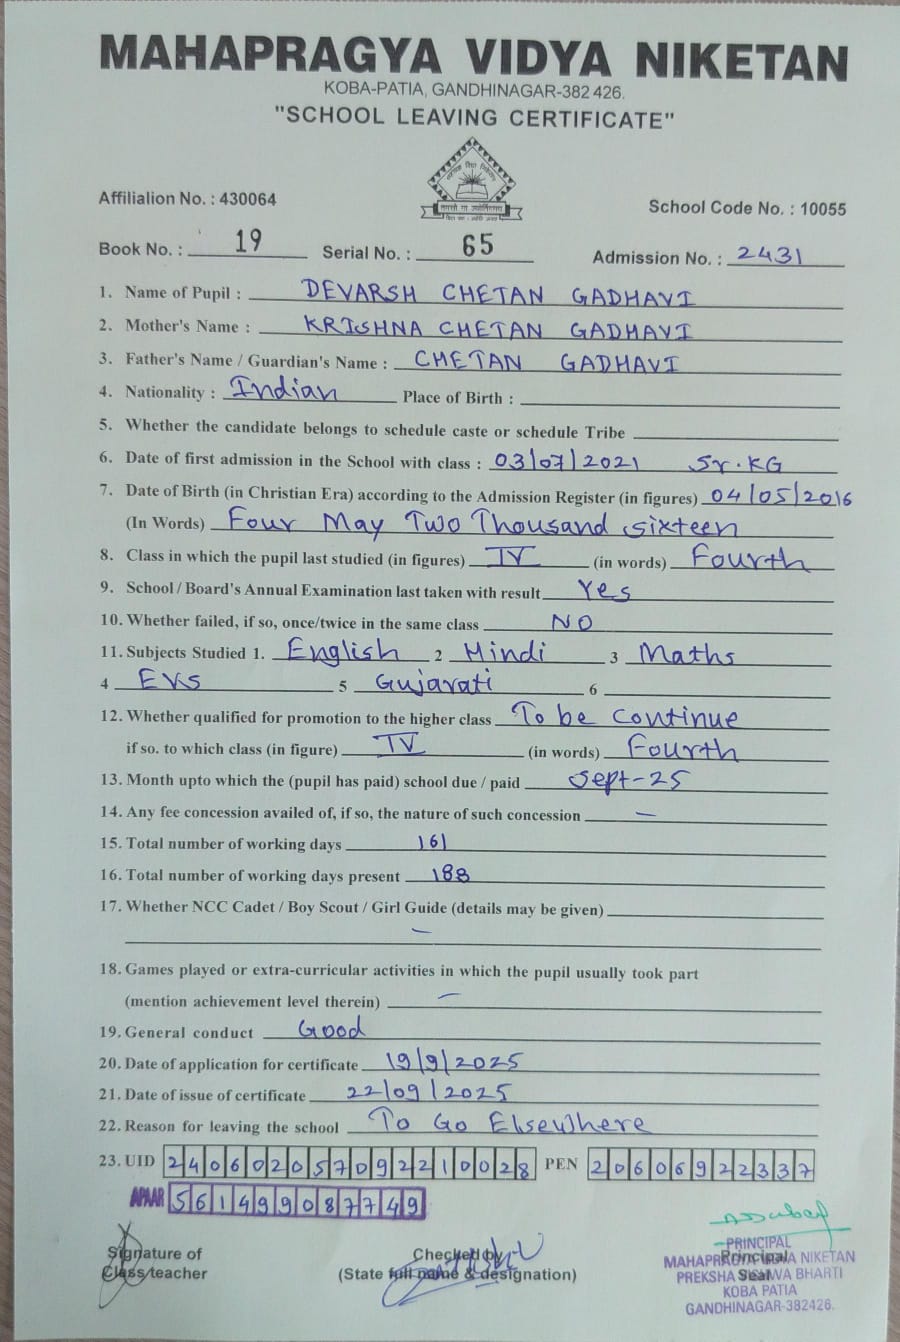 MAHAPRAGYA VIDYA NIKETAN
KOBA-PATIA, GANDHINAGAR-382 426.
"SCHOOL LEAVING CERTIFICATE"
Affilialion No. : 430064
School Code No. : 10055
Book No. : 19 Serial No. : 65 Admission No. : 2431
1. Name of Pupil : DEVARSH CHETAN GADHAVI
2. Mother's Name : KRISHNA CHETAN GADHAVI
3. Father's Name / Guardian's Name : CHETAN GADHAVI
4. Nationality : Indian Place of Birth :
5. Whether the candidate belongs to schedule caste or schedule Tribe
6. Date of first admission in the School with class : 03/07/2021 Sr.KG
7. Date of Birth (in Christian Era) according to the Admission Register (in figures) 04/05/2016
(In Words) Four May Two Thousand sixteen
8. Class in which the pupil last studied (in figures) IV (in words) Fourth
9. School / Board's Annual Examination last taken with result Yes
10. Whether failed, if so, once/twice in the same class NO
11. Subjects Studied 1. English 2 Hindi 3 Maths
4 EVS 5 Gujarati 6
12. Whether qualified for promotion to the higher class To be continue
if so. to which class (in figure) IV (in words) Fourth
13. Month upto which the (pupil has paid) school due / paid Sept-25
14. Any fee concession availed of, if so, the nature of such concession —
15. Total number of working days 161
16. Total number of working days present 188
17. Whether NCC Cadet / Boy Scout / Girl Guide (details may be given)
—
18. Games played or extra-curricular activities in which the pupil usually took part
(mention achievement level therein) —
19. General conduct Good
20. Date of application for certificate 19/9/2025
21. Date of issue of certificate 22/09/2025
22. Reason for leaving the school To Go Elsewhere
23. UID 240602057092210028 PEN 20606922337
APAAR 561499087749
Signature of
Class teacher
Checked by
(State full name & designation)
Principal
Seal
PRINCIPAL
MAHAPRAGYA VIDYA NIKETAN
PREKSHA VISHWA BHARTI
KOBA PATIA
GANDHINAGAR-382426.